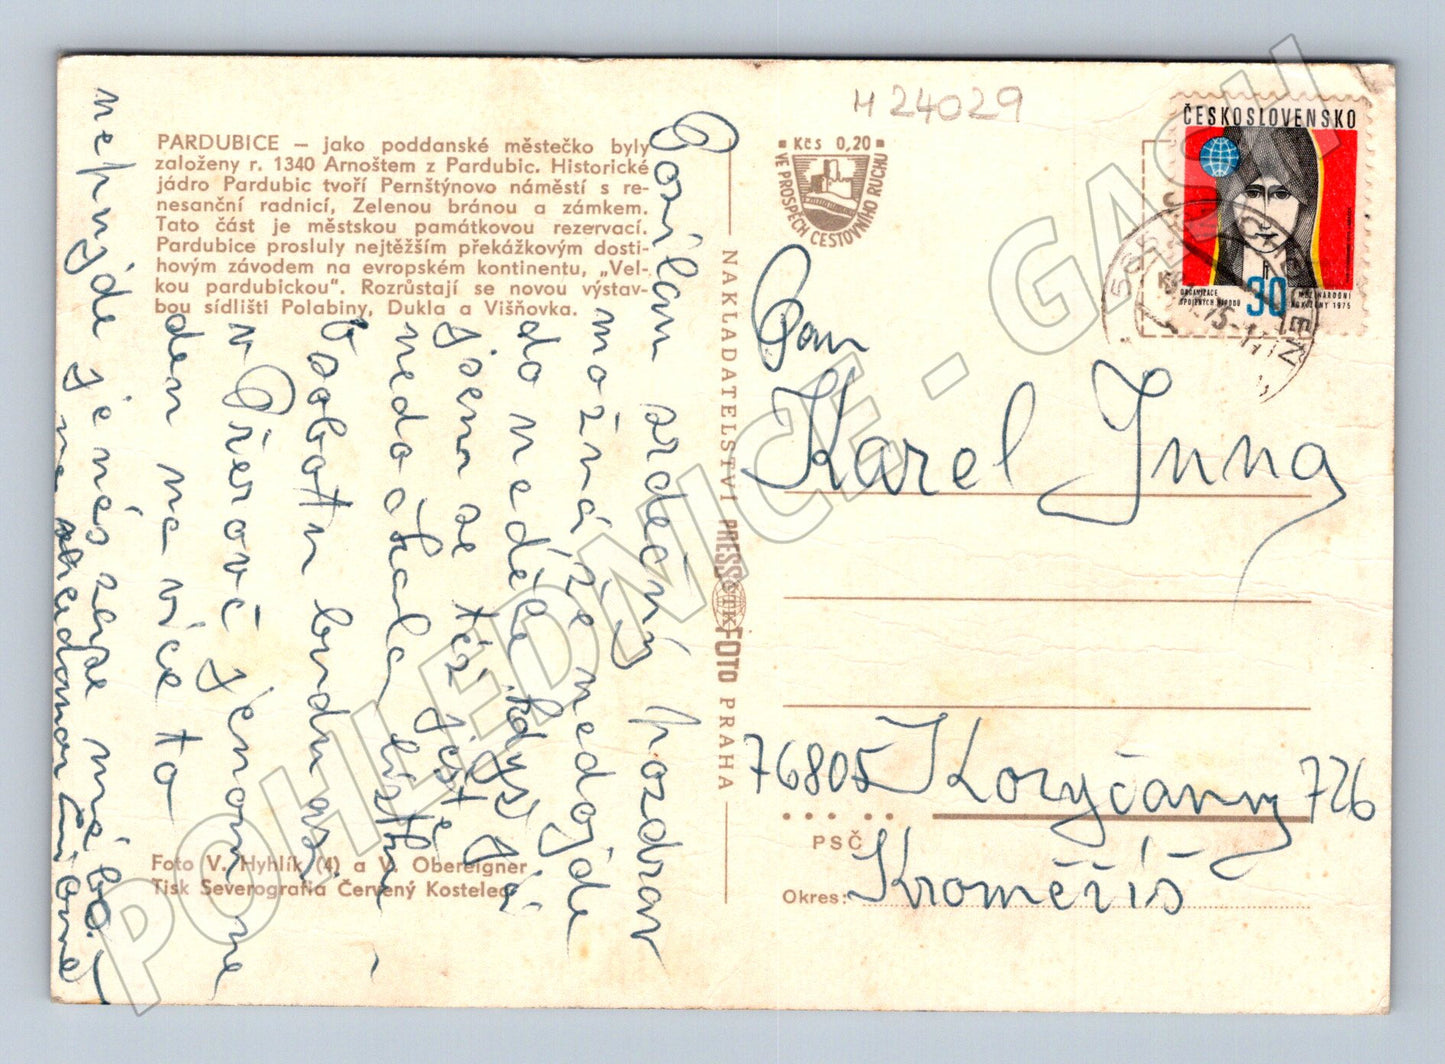 H 24029
PARDUBICE – jako poddanské městečko byly
založeny r. 1340 Arnoštem z Pardubic. Historické
jádro Pardubic tvoří Pernštýnovo náměstí s re-
nesanční radnicí, Zelenou bránou a zámkem.
Tato část je městskou památkovou rezervací.
Pardubice prosluly nejtěžším překážkovým dosti-
hovým závodem na evropském kontinentu, „Vel-
kou pardubickou". Rozrůstají se novou výstav-
bou sídlišti Polabiny, Dukla a Višňovka.
Posílám srdečný pozdrav
možná že nedojde
do neděle, když já
jsem se též ještě
nedočkala
V sobotu budu asi
v Přerově jenom ne
den na více to
nepůjde je nés zase mé
Foto V. Hyhlík (4) a V. Obereigner
Tisk Severografia Červený Kostelec
NAKLADATELSTVÍ PRESSFOTO PRAHA
ČTK
Kčs 0,20
VE PROSPĚCH CESTOVNÍHO RUCHU
ČESKOSLOVENSKO
ORGANIZACE
SPOJENÝCH NÁRODŮ
30
MEZINÁRODNÍ
ROK ŽENY 1975
Pan
Karel Jung
76805 Koryčany 726
PSČ
Okres: Kroměříš
POHLEDNICE - GASH